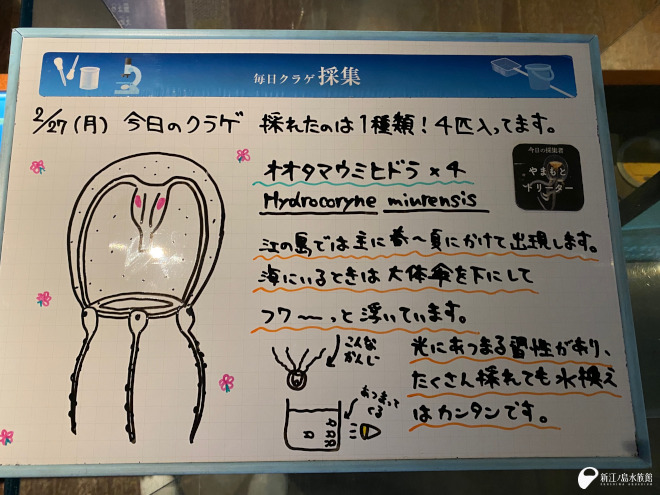 毎日クラゲ採集
2/27(月) 今日のクラゲ 採れたのは1種類! 4匹入ってます。
今日の採集者
やまもと
トリーター
オオタマウミヒドラ×4
Hydrocoryne miurensis
江の島では主に春〜夏にかけて出現します。
海にいるときは大体傘を下にして
フワ〜っと浮いています。
こんな
かんじ
光にあつまる習性があり、
たくさん採れても水換え
はカンタンです。
あつまって
くる
新江ノ島水族館
ENOSHIMA AQUARIUM